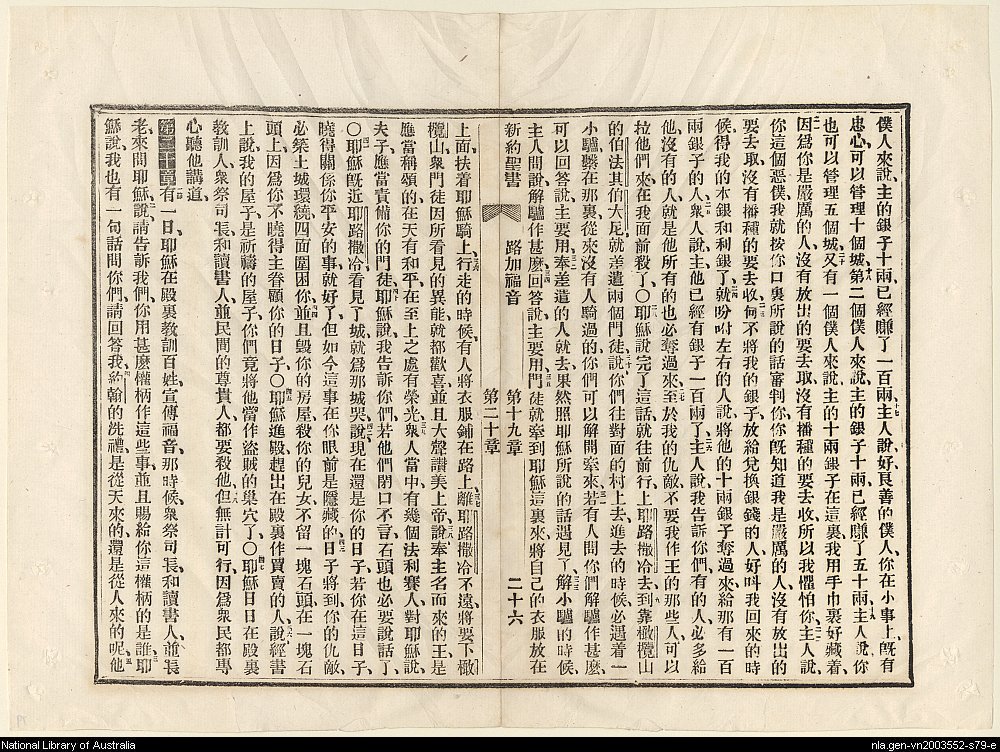 僕人來說、主的銀子十兩、已經賺了一百兩、主人說、好良善的僕人、你在小事上旣有
忠心、可以管理十個城、第二個僕人來說、主的銀子十兩、已經賺了五十兩、主人說、你
也可以管理五個城、又有一個僕人來說、主的十兩銀子在這裏、我用手巾裹好藏着、
因爲你是嚴厲的人、沒有放出的要去取、沒有播種的要去收、所以我懼怕你、主人說、
你這個惡僕、我就按你口裏所說的話審判你、你旣知道我是嚴厲的人、沒有放出的
要去取、沒有播種的要去收、何不將我的銀子放給兌換銀錢的人、好叫我回來的時
候、得我的本銀和利銀了、就吩咐左右的人說、將他的十兩銀子奪過來、給那有一百
兩銀子的人、衆人說、主、他已經有銀子一百兩了、主人說、我告訴你們、有的人、必多給
他、沒有的人、就是他所有的也必奪過來、至於我的仇敵、不要我作王的那些人、可以
拉他們來、在我面前殺了〇耶穌說完了這話、就往前行、上耶路撒冷去、到靠橄欖山
的伯法其伯大尼、就差遣兩個門徒、說、你們往對面的村上去、進去的時候、必遇着一
小驢繫在那裏、從來沒有人騎過的、你們可以解開牽來、若有人問你們解驢作甚麽、
可以回答說、主要用、奉差遣的人就去、果然照耶穌所說的話遇見了、解小驢的時候、
主人問說、解驢作甚麽、回答說、主要用、門徒就牽到耶穌這裏來、將自己的衣服放在
新約聖書 路加福音 第十九章 第二十章 二十六
上面、扶着耶穌騎上、行走的時候、有人將衣服鋪在路上、離耶路撒冷不遠、將要下橄
欖山、衆門徒因所看見的異能、就都歡喜、並且大聲讚美上帝、說、奉主名而來的王、是
應當稱頌的、在天有和平、在至上之處有榮光、衆人當中有幾個法利賽人、對耶穌說、
夫子、應當責備你的門徒、耶穌說、我告訴你們、若他們閉口不言、石頭也必要說話了、
〇耶穌旣近耶路撒冷、看見了城、就爲那城哭、說、現在還是你的日子、若你在這日子、
曉得關係你平安的事就好了、但如今這事在你眼前是隱藏的、日子將到、你的仇敵、
必築土城環繞、四面圍困你、並且毀你的房屋、殺你的兒女、不留一塊石頭在一塊石
頭上、因爲你不曉得主眷顧你的日子〇耶穌進殿、趕出在殿裏作買賣的人、說、經書
上說、我的屋子、是祈禱的屋子、你們竟將他當作盜賊的巢穴了〇耶穌日日在殿裏
教訓人、衆祭司長和讀書人、並民間的尊貴人、都要殺他、但無計可行、因爲衆民都專
心聽他講道、
第二十章有一日、耶穌在殿裏教訓百姓、宣傳福音、那時候、衆祭司長和讀書人、並長
老、來問耶穌、說、請告訴我們、你用甚麽權柄作這些事、並且賜給你這權柄的是誰、耶
穌說、我也有一句話問你們、請回答我、約翰的洗禮、是從天來的、還是從人來的呢、他
National Library of Australia
nla.gen-vn2003552-s79-e